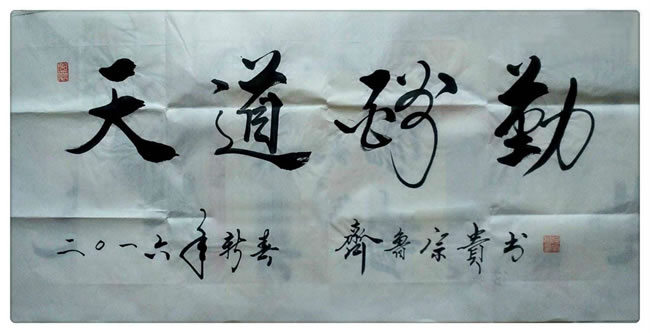 天道酬勤
二〇一六年新春 齊魯宗貴书